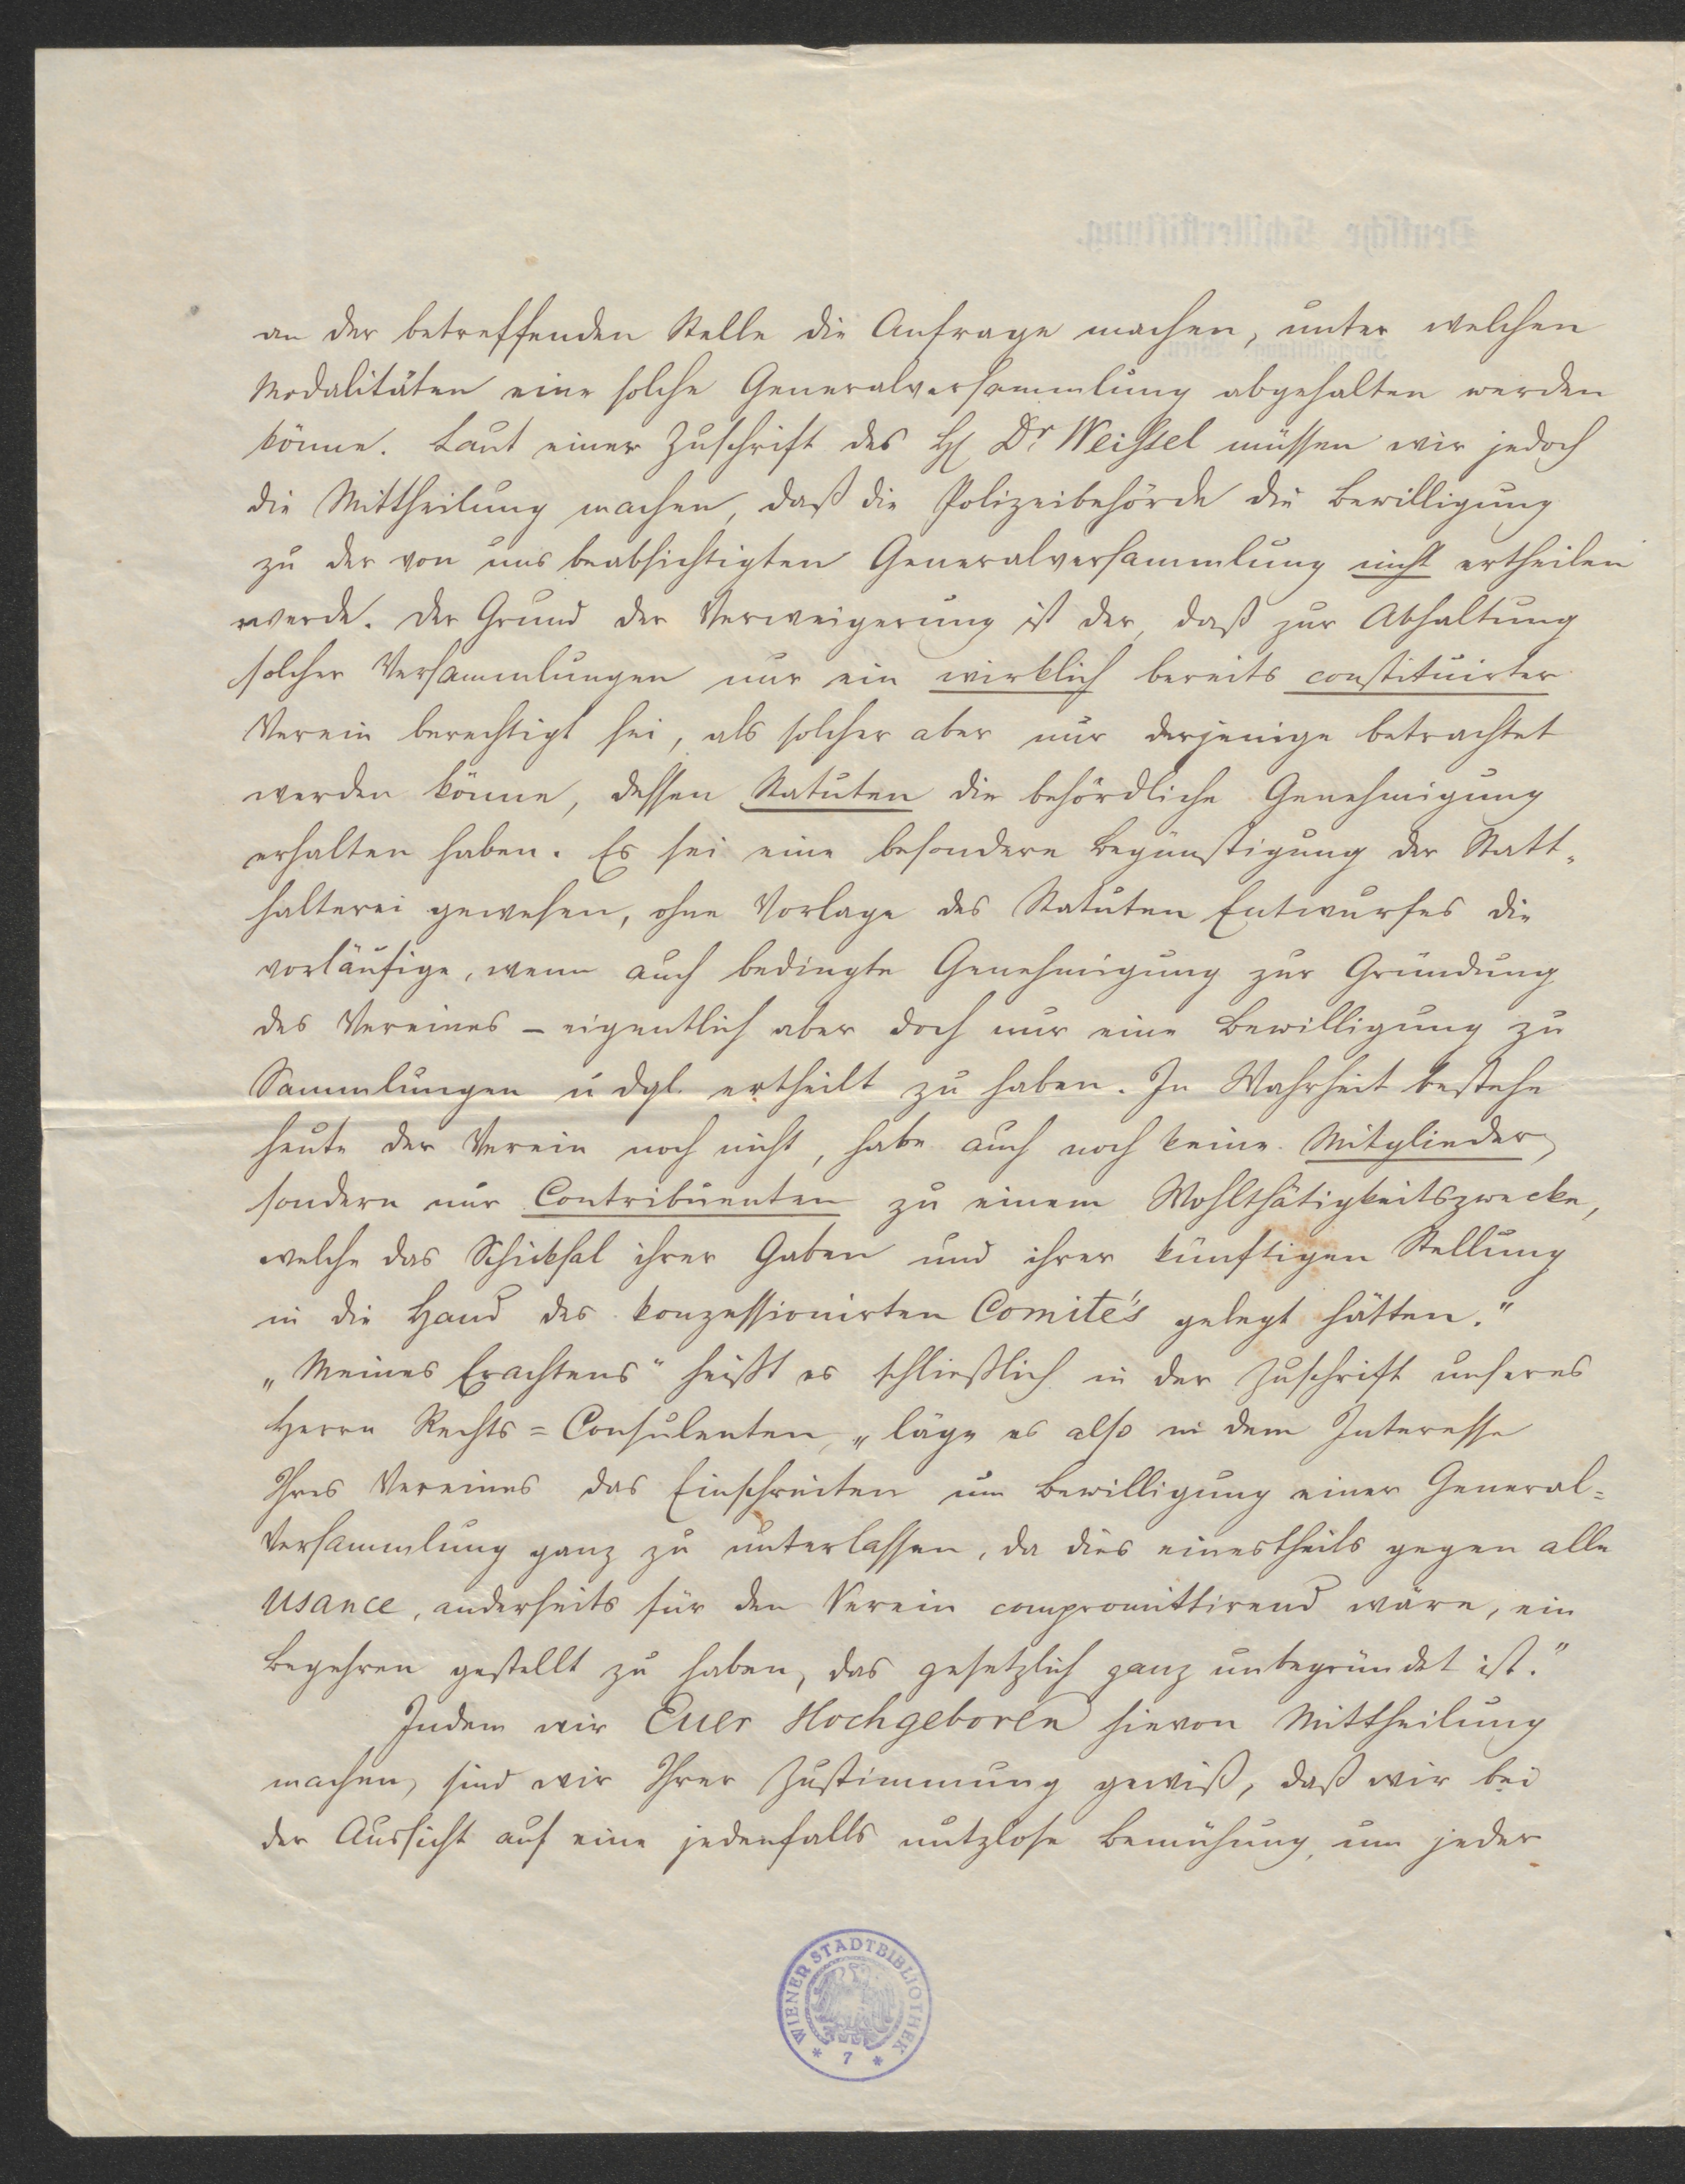 an der betreffenden Stelle die Anfrage machen, unter welchen
Modalitäten eine solche Generalversammlung abgehalten werden
könne. Laut einer Zuschrift des H Dr Weissel müssen wir jedoch
die Mittheilung machen, daß die Polizeibehörde die Bewilligung
zu der von uns beabsichtigten Generalversammlung nicht ertheilen
werde. Der Grund der Verweigerung ist der, daß zur Abhaltung
solcher Versammlungen nur ein wirklich bereits constituirter
Verein berechtigt sei, als solcher aber nur derjenige betrachtet
werden könne, dessen Statuten die behördliche Genehmigung
erhalten haben. Es sei eine besondere Begünstigung der Statt-
halterei gewesen, ohne Vorlage des Statuten Entwurfes die
vorläufige, wenn auch bedingte Genehmigung zur Gründung
des Vereines – eigentlich aber doch nur eine Bewilligung zu
Sammlungen u dgl. ertheilt zu haben. In Wahrheit bestehe
heute der Verein noch nicht, habe auch noch keine Mitglieder,
sondern nur Contribuenten zu einem Wohlthätigkeitszwecke,
welche das Schicksal ihrer Gaben und ihrer künftigen Stellung
in die Hand des konzessionirten Comité's gelegt hätten."
„Meines Erachtens" heißt es schließlich in der Zuschrift unseres
Herrn Rechts=Consulenten, „läge es also in dem Interesse
Ihres Vereines das Einschreiten um Bewilligung einer General=
Versammlung ganz zu unterlassen, da dies einestheils gegen alle
Usance, anderseits für den Verein compromittirend wäre, ein
Begehren gestellt zu haben, das gesetzlich ganz unbegründet ist."
Indem wir Euer Hochgeboren hievon Mittheilung
machen, sind wir Ihrer Zustimmung gewiß, daß wir bei
der Aussicht auf eine jedenfalls nutzlose Bemühung, um jeder
WIENER STADTBIBLIOTHEK
* 7 *